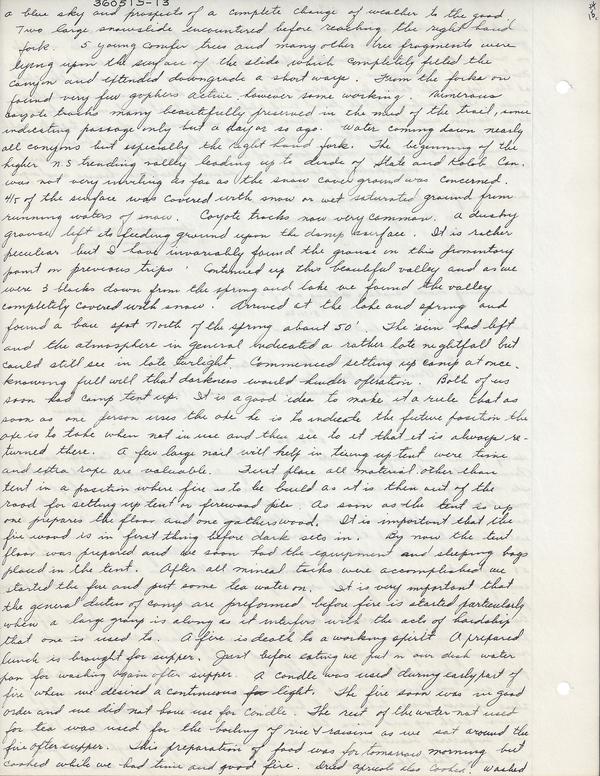 360515-13
a blue sky and prospects of a complete change of weather to the good
Two large snowslide encountered before reaching the right hand
fork. 5 young conifer trees and many other tree fragments were
lying upon the surface of the slide which completely filled the
canyon and extended downgrade a short ways. From the forks on
found very few gophers active however some working. Numerous
coyote tracks many beautifully preserved in the mud of the trail, some
indicating passage only but a day or so ago. Water coming down nearly
all canyons but especially the right hand fork. The beginning of the
higher N.S trending valley leading up to divide of State and Kolob Can.
was not very inviting as far as the snow cover ground was concerned.
4/5 of the surface was covered with snow or wet saturated ground from
running waters of snow. Coyote tracks now very common. A dusky
grouse left its feeding ground upon the damp surface. It is rather
peculiar but I have invariably found the grouse on this promontory
point on previous trips. Continued up this beautiful valley and as we
were 3 blocks down from the spring and lake we found the valley
completely covered with snow. Arrived at the lake and spring and
found a bare spot North of the spring about 50'. The sun had left
and the atmosphere in general indicated a rather late nightfall but
could still see in late twilight. Commenced setting up camp at once.
knowing full well that darkness would hinder operation. Both of us
soon had camp tent up. It is a good idea to make it a rule that as
soon as one person uses the axe he is to indicate the future position the
axe is to take when not in use and then see to it that it is always re-
turned there. A few large nail will help in tieing up tent were time
and extra rope are valuable. First place all material other than
tent in a position where fire is to be build as it is then out of the
road for setting up tent or firewood pile. As soon as the tent is up
one prepares the floor and one gathers wood. It is important that the
fire wood is in first thing before dark sets in. By now the tent
floor was prepared and we soon had the equipment and sleeping bags
placed in the tent. After all mineal tasks were accomplished we
started the fire and put some tea water on. It is very important that
the general duties of camp are preformed before fire is started particularly
when a large group is along as it interfers with the acts of hardship
that one is used to. A fire is death to a working spirit. A prepared
lunch is brought for supper. Just before eating we put on our dish water
pan for washing again after supper. A candle was used during early part of
fire when we desired a continuous light. The fire soon was in good
order and we did not have use for candle. The rest of the water not used
for tea was used for the boiling of rice & raisins as we sat around the
fire after supper. This preparation of food was for tomorrow morning but
cooked while we had time and good fire. Dried apricots also cooked. Washed